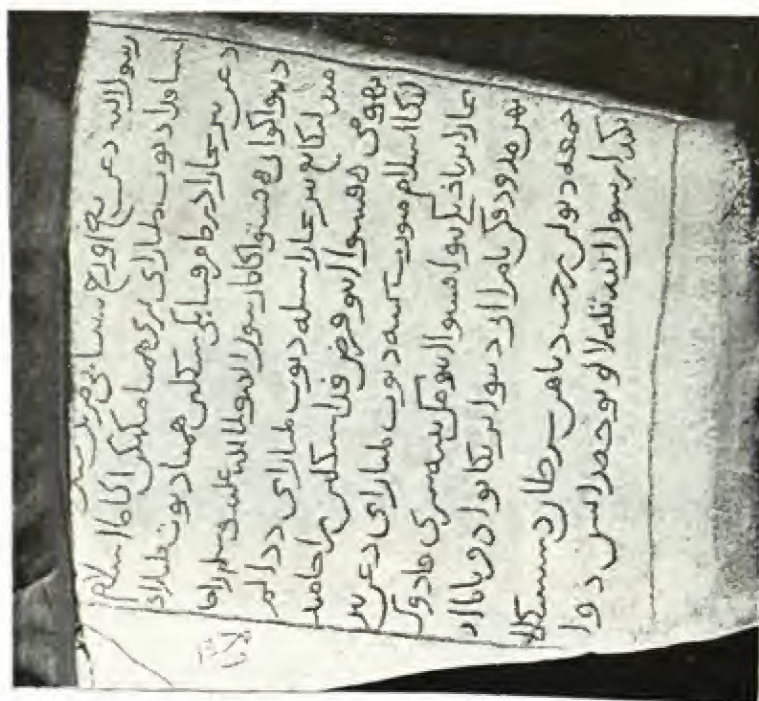 رسول الله دغن يغ اورغ
اسا فد ديوت ملا راي مبري حمبا مغهكن اكام اسلام
دغن بنر بچارا درما مرك سبغي سكلين حمبا ديوت ملا راي
دبنواكو اين فننتو اكام رسول الله صلى الله عليه وسلم راج
مندلك يغ بنر بچارا سبله ديوت ملا راي ددالم
بهومي فننتوا ايت فرض فد سكلين راج مند
لك اسلام منورت سبتيه ديوت ملا راي دغن بنر
بچارا بربجيكي بنوا فننتوا ايت مك تيته سري فادوك
تهن مدودقكن تامرا اين دبنوا ترغكانو ادفرتام اد
جمعة دبولن رجب دتاهن سرطان دسنسكال
بكند رسول الله تله لالو توجه راتس دوا